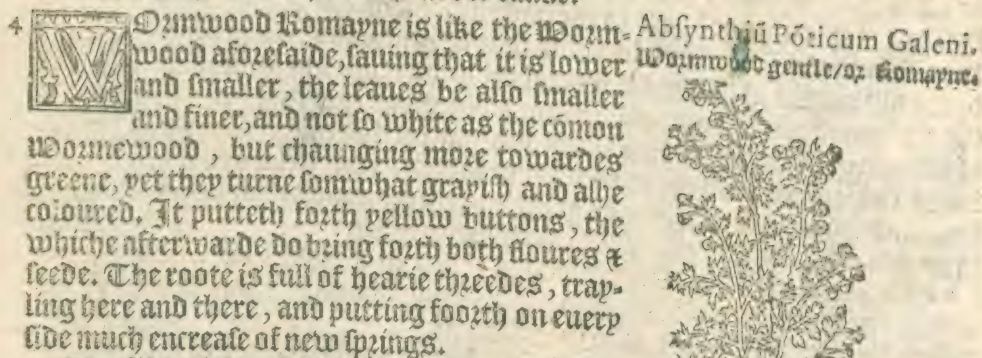 4 WOrmwood Romayne is like the Worm-
wood aforesaide, sauing that it is lower
and smaller, the leaues be also smaller
and finer, and not so white as the cõmon
Wormewood, but chaunging more towardes
greene, yet they turne somwhat grayish and asshe
coloured. It putteth forth yellow buttons, the
whiche afterwarde do bring forth both floures &
seede. The roote is full of hearie threedes, tray-
ling here and there, and putting foorth on euery
side much encrease of new springs.
Absynthiũ Põticum Galeni.
Wormwood gentle/or Romayne.